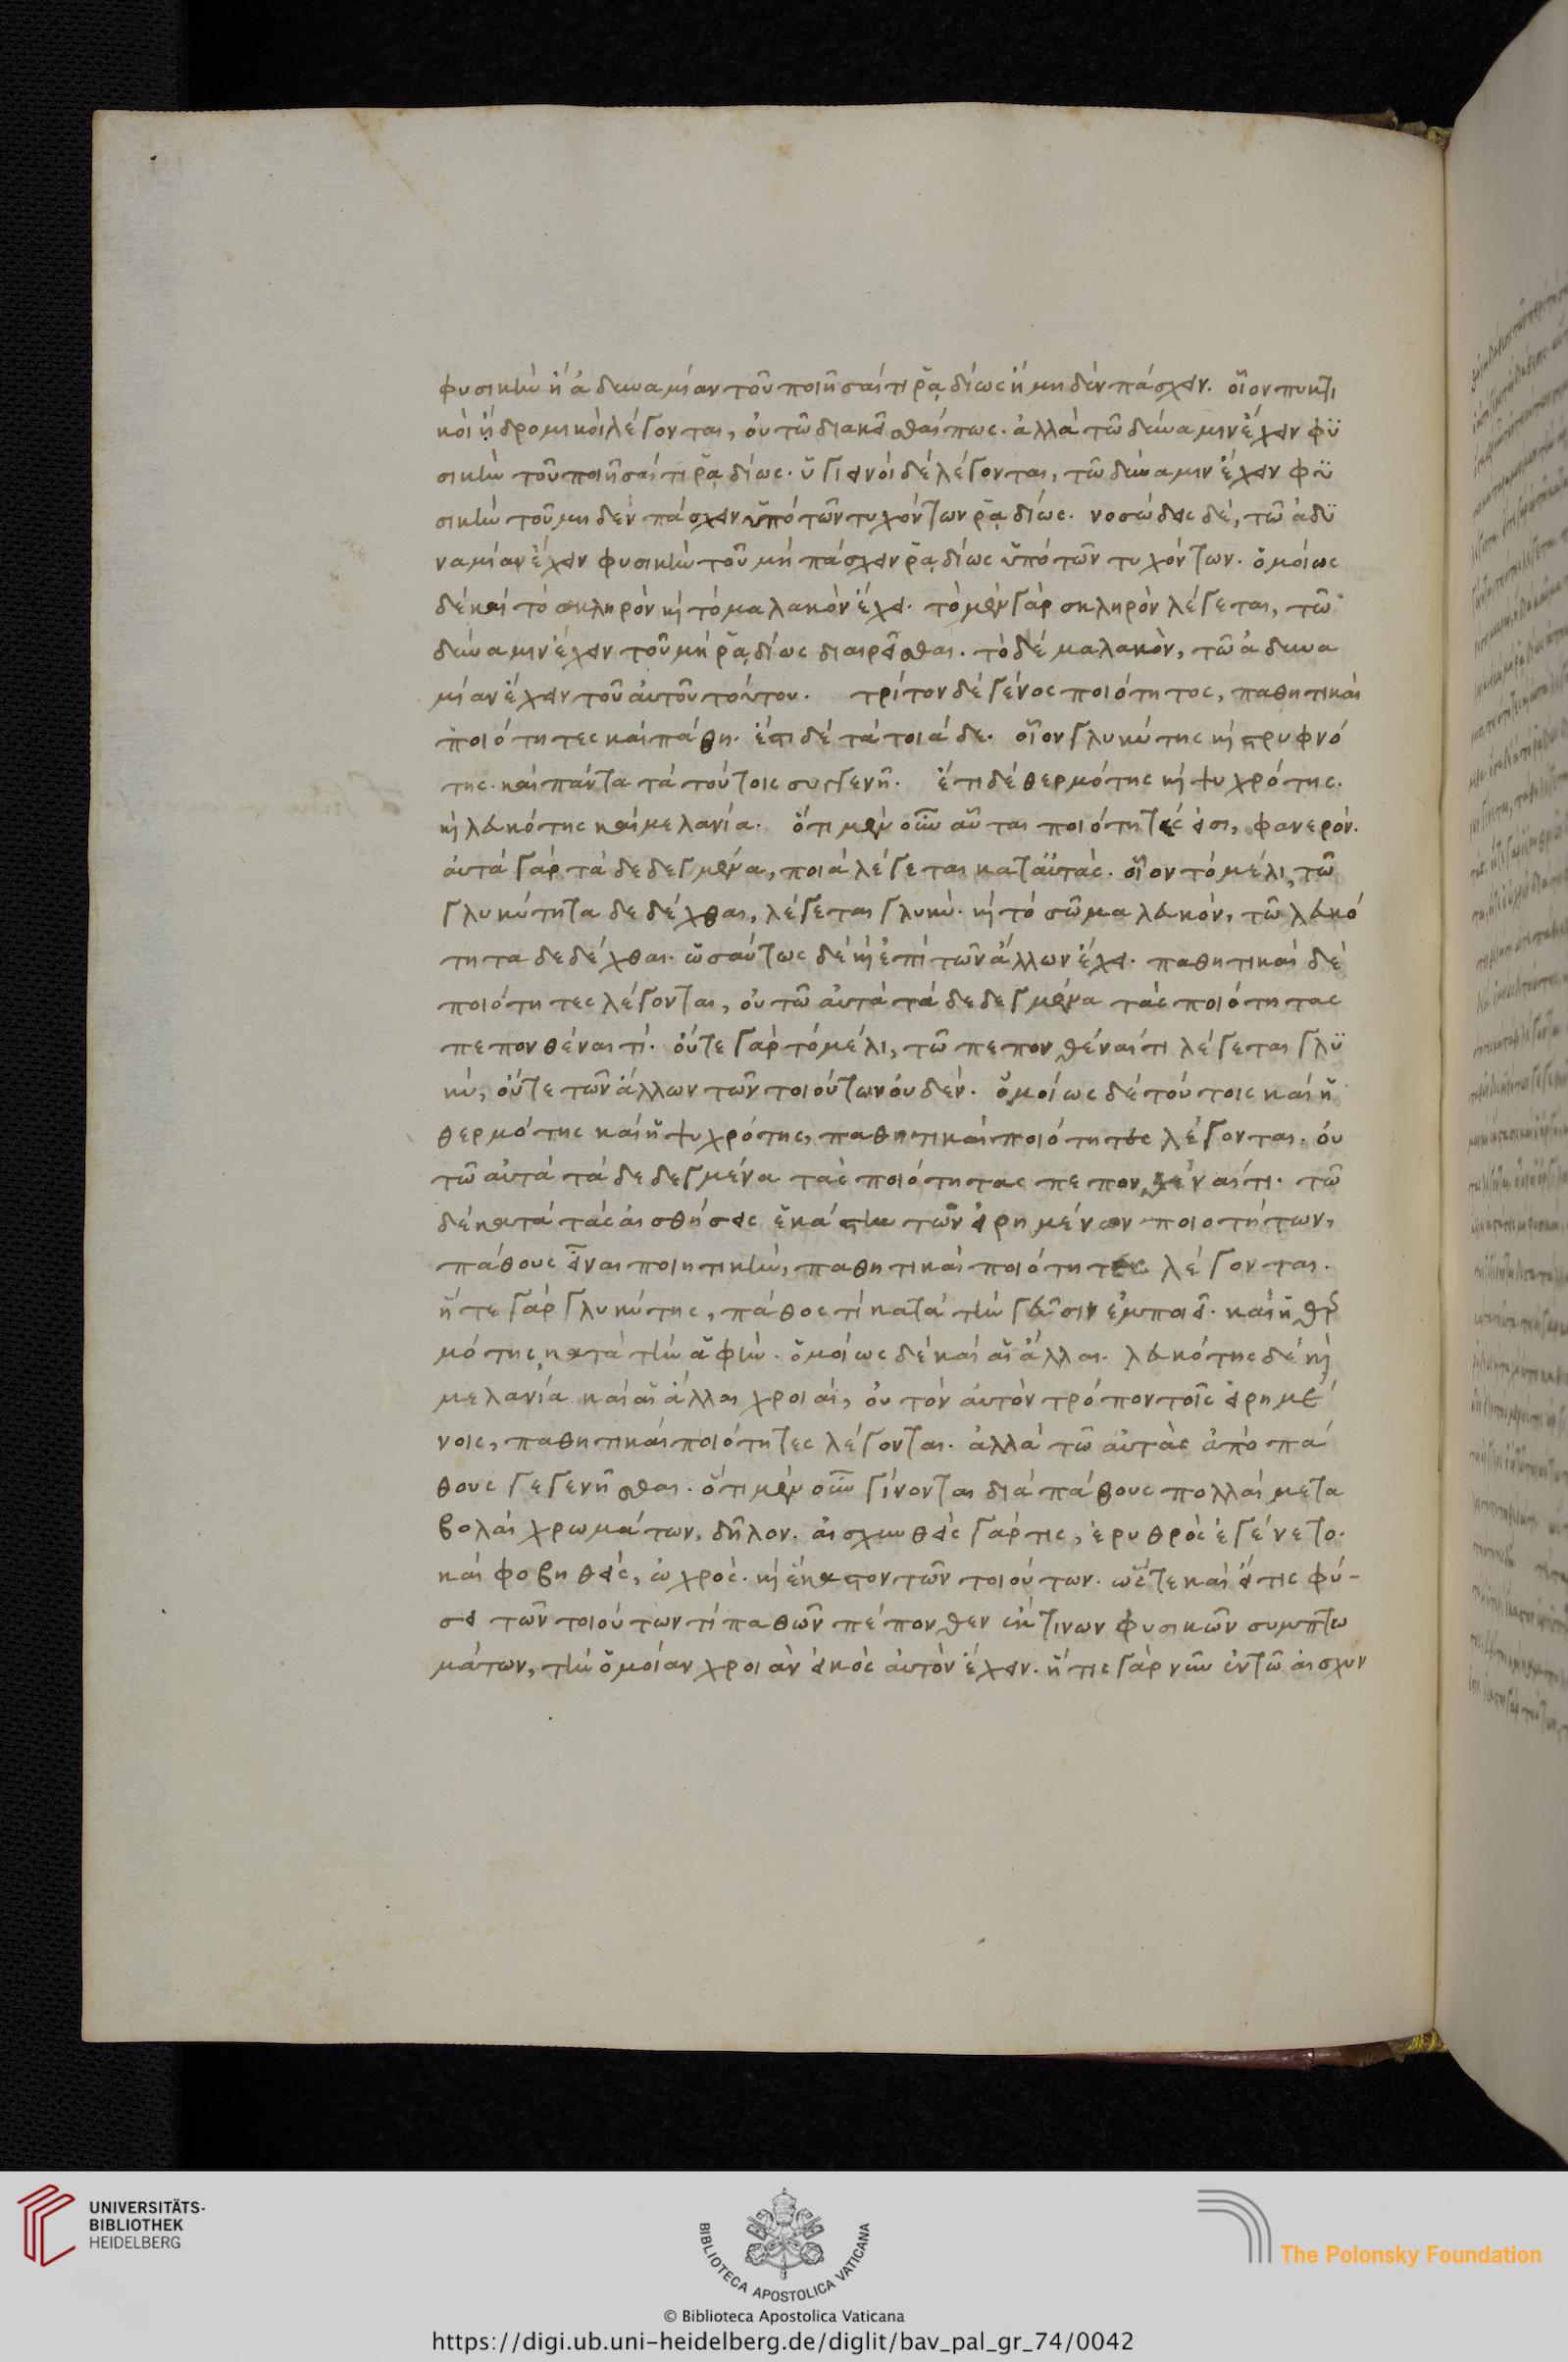 φυσικὴν ἢ ἀδυναμίαν τοῦ ποιῆσαί τι ῥᾳδίως ἢ μηδὲν πάσχειν. οἷον πυκτι
κοὶ ἢ δρομικοὶ λέγονται, οὐ τῶ διακεῖσθαί πως. ἀλλὰ τῶ δύναμιν ἔχειν φυ
σικὴν τοῦ ποιῆσαί τι ῥᾳδίως. ὑγιεινοὶ δὲ λέγονται, τῶ δύναμιν ἔχειν φυ
σικὴν τοῦ μηδὲν πάσχειν ὑπὸ τῶν τυχόντων ῥᾳδίως. νοσώδεις δέ, τῶ ἀδυ
ναμίαν ἔχειν φυσικὴν τοῦ μὴ πάσχειν ῥᾳδίως ὑπὸ τῶν τυχόντων. ὁμοίως
δὲ καὶ τὸ σκληρὸν καὶ τὸ μαλακὸν ἔχει. τὸ μὲν γὰρ σκληρὸν λέγεται, τῶ
δύναμιν ἔχειν τοῦ μὴ ῥᾳδίως διαιρεῖσθαι. τὸ δὲ μαλακὸν, τῶ ἀδυνα
μίαν ἔχειν τοῦ αὐτοῦ τούτου. τρίτον δὲ γένος ποιότητος, παθητικαὶ
ποιότητες καὶ πάθη. ἔστι δὲ τὰ τοιάδε. οἷον γλυκύτης καὶ στρυφνό
της. καὶ πάντα τὰ τούτοις συγγενῆ. ἔτι δὲ θερμότης καὶ ψυχρότης.
καὶ λευκότης καὶ μελανία. ὅτι μὲν οὖν αὗται ποιότητές εἰσι, φανερόν.
αὐτὰ γὰρ τὰ δεδεγμένα, ποιὰ λέγεται κατ' αὐτάς. οἷον τὸ μέλι, τῶ
γλυκύτητα δεδέχθαι, λέγεται γλυκύ. καὶ τὸ σῶμα λευκὸν, τῶ λευκό
τητα δεδέχθαι. ὡσαύτως δὲ καὶ ἐπὶ τῶν ἄλλων ἔχει. παθητικαὶ δὲ
ποιότητες λέγονται, οὐ τῶ αὐτὰ τὰ δεδεγμένα τὰς ποιότητας
πεπονθέναι τί. οὔτε γὰρ τὸ μέλι, τῶ πεπονθέναί τι λέγεται γλυ
κύ, οὔτε τῶν ἄλλων τῶν τοιούτων οὐδέν. ὁμοίως δὲ τούτοις καὶ ἡ
θερμότης καὶ ἡ ψυχρότης, παθητικαὶ ποιότητες λέγονται. οὐ
τῶ αὐτὰ τὰ δεδεγμένα τὰς ποιότητας πεπονθέναί τι. τῶ
δὲ κατὰ τὰς αἰσθήσεις ἑκάστην τῶν εἰρημένων ποιοτήτων,
πάθους εἶναι ποιητικὴν, παθητικαὶ ποιότητες λέγονται.
ἥ τε γὰρ γλυκύτης, πάθος τί κατὰ τὴν γεῦσιν ἐμποιεῖ. καὶ ἡ θερ
μότης, κατὰ τὴν ἁφήν. ὁμοίως δὲ καὶ αἱ ἄλλαι. λευκότης δὲ καὶ
μελανία καὶ αἱ ἄλλαι χροιαί, οὐ τὸν αὐτὸν τρόπον τοῖς εἰρημέ
νοις, παθητικαὶ ποιότητες λέγονται. ἀλλὰ τῶ αὐτὰς ἀπὸ πά
θους γεγενῆσθαι. ὅτι μὲν οὖν γίνονται διὰ πάθους πολλαὶ μετα
βολαὶ χρωμάτων, δῆλον. αἰσχυνθεὶς γάρ τις, ἐρυθρὸς ἐγένετο.
καὶ φοβηθείς, ὠχρός. καὶ ἕκαστον τῶν τοιούτων. ὥστε καὶ εἴ τις φύ-
σει τῶν τοιούτων τί παθῶν πέπονθεν ἔκ τινων φυσικῶν συμπτω
μάτων, τὴν ὁμοίαν χροιὰν εἰκὸς αὐτὸν ἔχειν. ἥτις γὰρ νῦν ἐν τῶ αἰσχυν
UNIVERSITÄTS-
BIBLIOTHEK
HEIDELBERG
BIBLIOTECA APOSTOLICA VATICANA
The Polonsky Foundation
© Biblioteca Apostolica Vaticana
https://digi.ub.uni-heidelberg.de/diglit/bav_pal_gr_74/0042